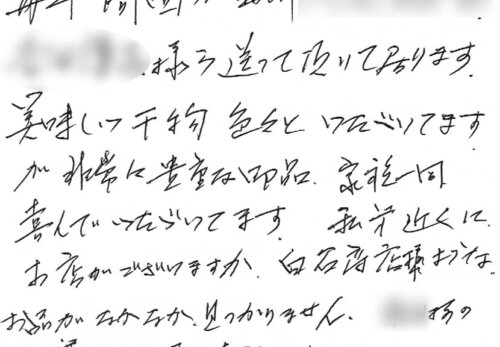 様ゟ送って頂いて居ります。
美味しい干物色々といただいてます
が非常に貴重な品、家族一同
喜んでいただいてます。私共近くに
お店がございますが、白石商店様のような
お品がなかなか、見つかりません。様の